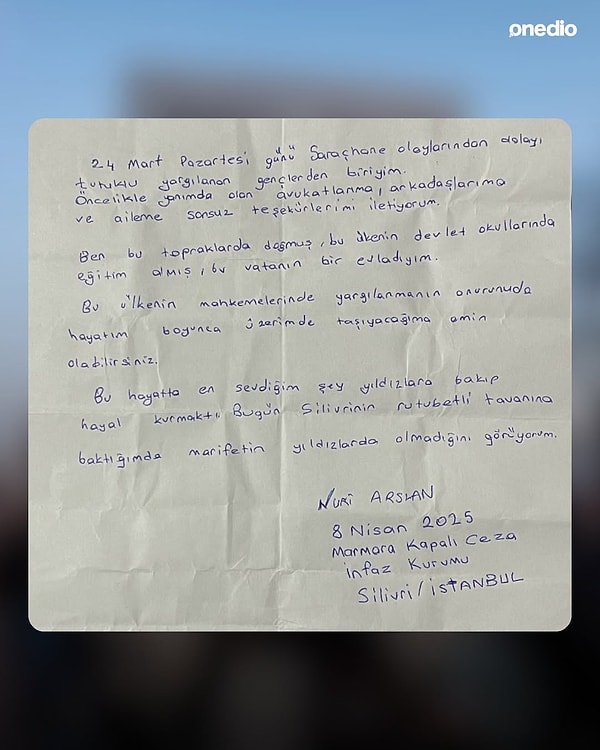 onedio
24 Mart Pazartesi günü Saraçhane olaylarından dolayı
tutuklu yargılanan gençlerden biriyim.
Öncelikle yanımda olan avukatlarıma, arkadaşlarıma
ve aileme sonsuz teşekürlerimi iletiyorum.
Ben bu topraklarda doğmuş, bu ülkenin devlet okullarında
eğitim almış, bu vatanın bir evladıyım.
Bu ülkenin mahkemelerinde yargılanmanın onurunuda
hayatım boyunca üzerimde taşıyacağıma emin
olabilirsiniz.
Bu hayatta en sevdiğim şey yıldızlara bakıp
hayal kurmaktı. Bugün Silivrinin rutubetli tavanına
baktığımda marifetin yıldızlarda olmadığını görüyorum.
NURİ ARSLAN
8 Nisan 2025
Marmara Kapalı Ceza
İnfaz Kurumu
Silivri/İSTANBUL